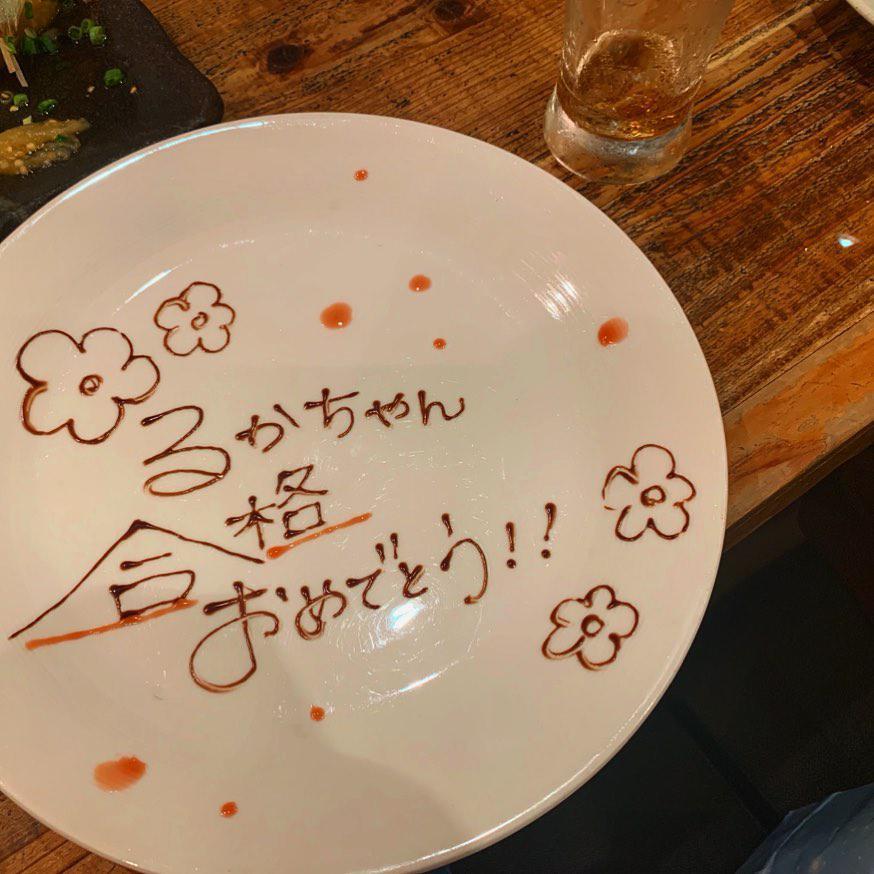 るかちゃん
合格
おめでとう!!